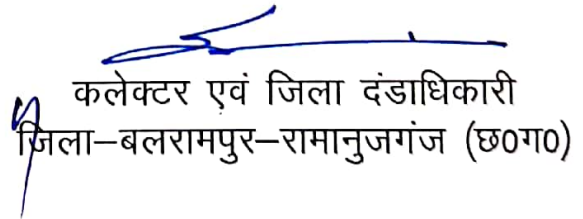 कलेक्टर एवं जिला दंडाधिकारी
जिला–बलरामपुर–रामानुजगंज (छ0ग0)